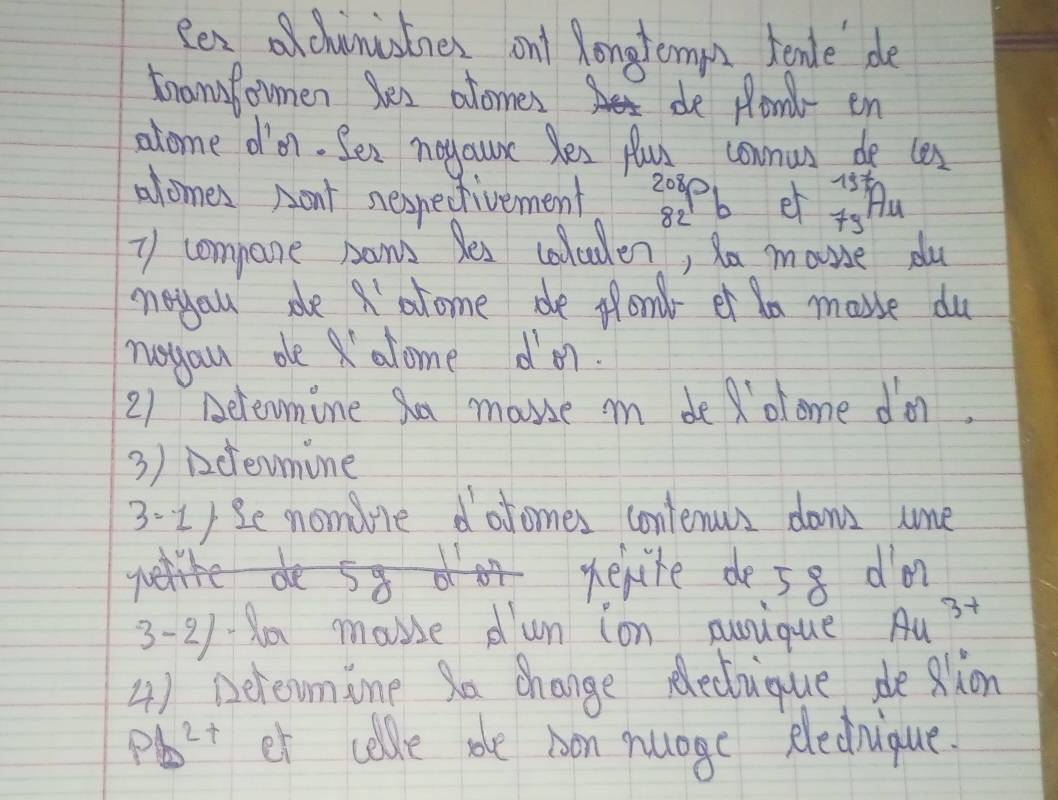 Les alchimistres ont longtemps tenté de
transformer les atomes les de plomb en
atome d'or. Les noyaux les plus connus de ces
atomes sont respectivement ²⁰⁸₈₂Pb et ¹⁹⁷₇₉Au
1) compare sans les calculer, la masse du
noyau de l'atome de plomb et la masse du
noyau de l'atome d'or.
2) Determine la masse m de l'atome d'or.
3) Determine
3-1) Le nombre d'atomes contenus dans une
petite de 5g d'or pépite de 5g d'or
3-2) la masse d'un ion aurique Au³⁺
4) Determine la charge electrique de l'ion
Pb²⁺ et celle de son nuage electrique.